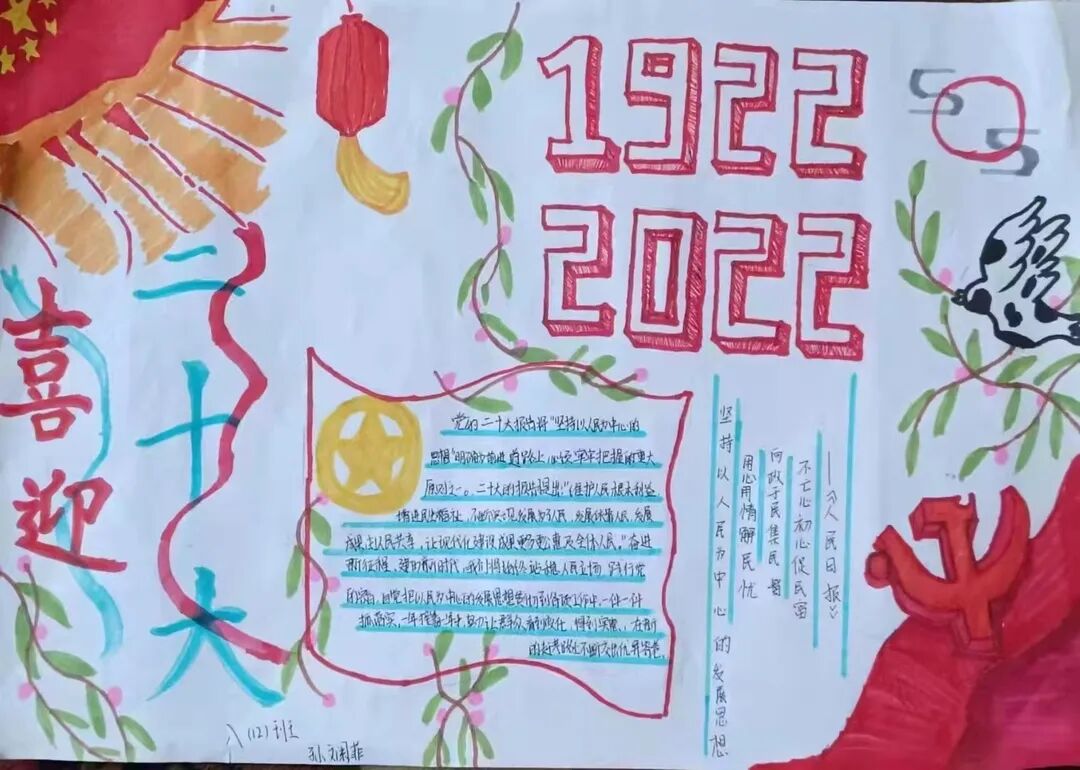 1922
2022
喜迎
二十大
党的二十大报告将“坚持以人民为中心的
思想”明确为前进道路上必须牢牢把握的重大
原则之一。二十大的报告提出:“维护人民根本利益,
增进民生福祉,不断实现发展为了人民,发展依靠人民,发展
成果由人民共享,让现代化建设成果更多更惠及全体人民。”奋进
新征程,建功新时代,我们将始终站稳人民立场
自觉把以人民为中心的发展思想贯彻到各项工作中,一件一件
抓落实,一年接着一年
——《人民日报》
不亡心初心促民富
问政于民集民智
用心用情解民忧
坚持以人民为中心的发展思想
八(12)班